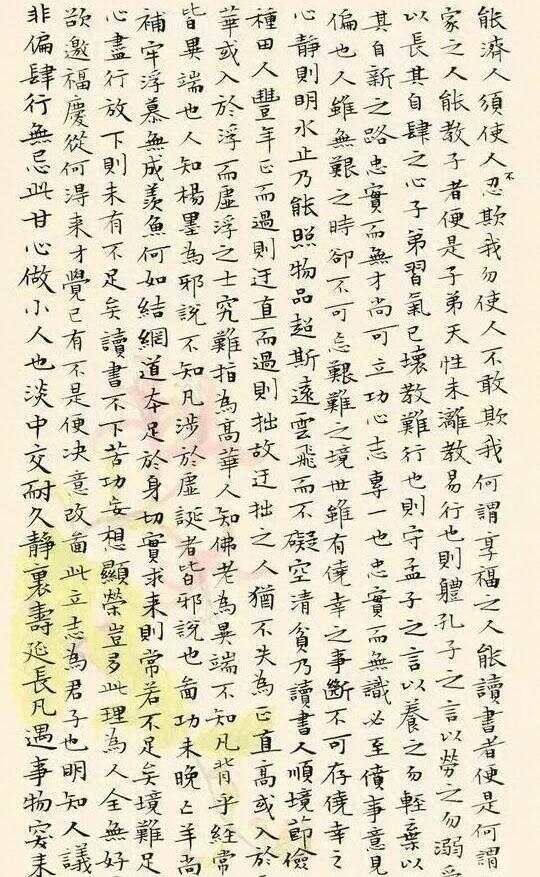 能濟人須使人不忍欺我勿使人不敢欺我何謂享福之人能讀書者便是何謂
家之人能教子者便是子弟天性未離教易行也則體孔子之言以勞之勿溺
以長其自肆之心子弟習氣已壞教難行也則守孟子之言以養之勿輕棄以
其自新之路忠實而無才尚可立功心志專一也忠實而無識必至僨事意見
偏也人雖無艱之時卻不可忘艱難之境世雖有僥幸之事斷不可存僥幸之
心靜則明水止乃能照物品超斯遠雲飛而不礙空清貧乃讀書人順境節儉
種田人豐年正而過則迂直而過則拙故迂拙之人猶不失為正直高或入於
華或入於浮而虛浮之士究難指為高華人知佛老為異端不知凡背乎經常
皆異端也人知楊墨為邪說不知凡涉於虛誕者皆邪說也圖功未晚亡羊尚
補牢浮慕無成羨魚何如結網道本足於身切實求來則常若不足矣境難足
心盡行放下則未有不足矣讀書不下苦功妄想顯榮豈有此理為人全無好
欲邀福慶從何得來才覺己有不是便決意改圖此立志為君子也明知人議
非偏肆行無忌此甘心做小人也淡中交耐久靜裏壽延長凡遇事物突來